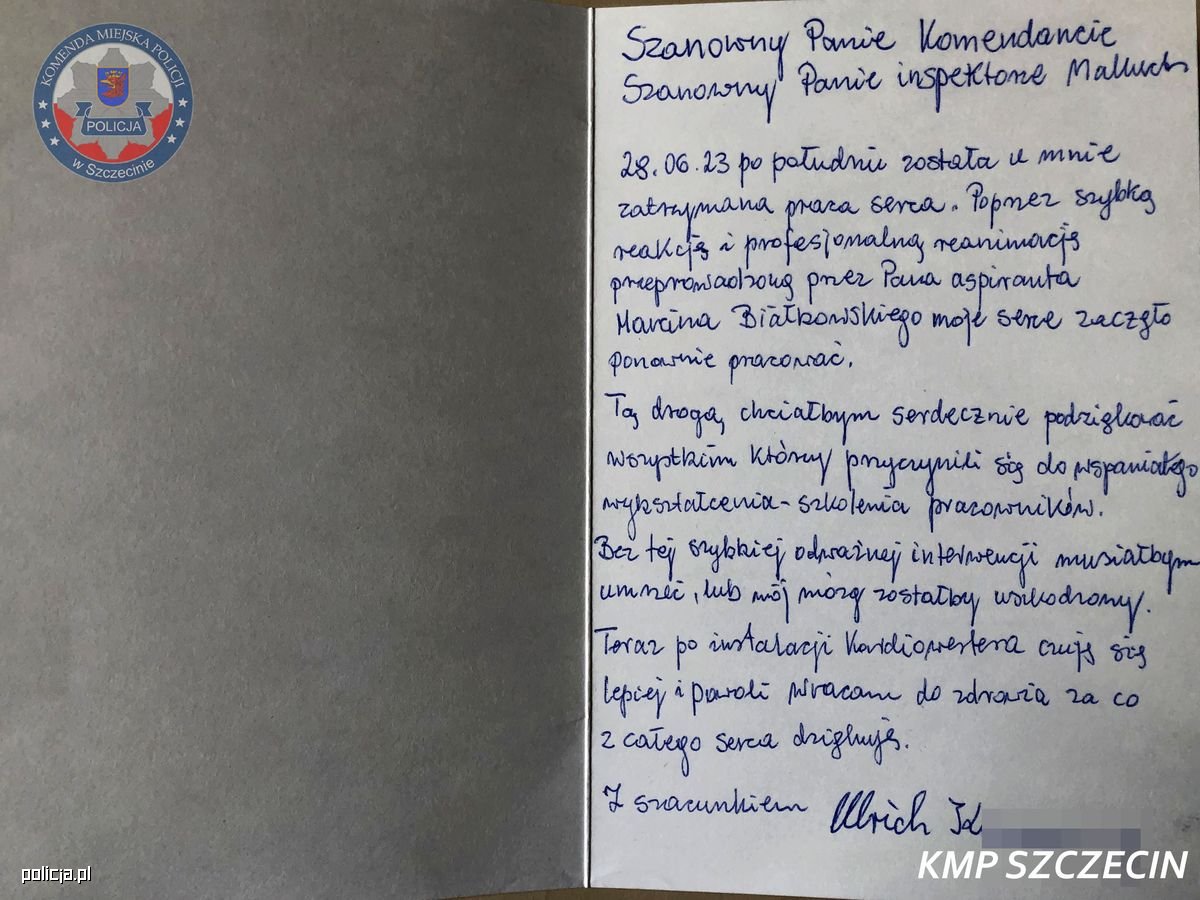 KOMENDA MIEJSKA POLICJI
POLICJA
w Szczecinie
Szanowny Panie Komendancie
Szanowny Panie inspektorze
28.06.23 po południu została u mnie
zatrzymana praca serca. Poprzez szybką
reakcję i profesjonalną reanimację
przeprowadzoną przez Pana aspiranta
Marcina Białkowskiego moje serce zaczęło
ponownie pracować.
Tą drogą chciałbym serdecznie podziękować
wszystkim którzy przyczynili się do wspaniałego
wykształcenia-szkolenia pracowników.
Bez tej szybkiej odważnej interwencji musiałbym
umrzeć, lub mój mózg zostałby uszkodzony.
Teraz po instalacji Kardiowertera czuję się
lepiej i powoli wracam do zdrowia za co
z całego serca dziękuję.
Z szacunkiem Ulrich
KMP SZCZECIN
policja.pl